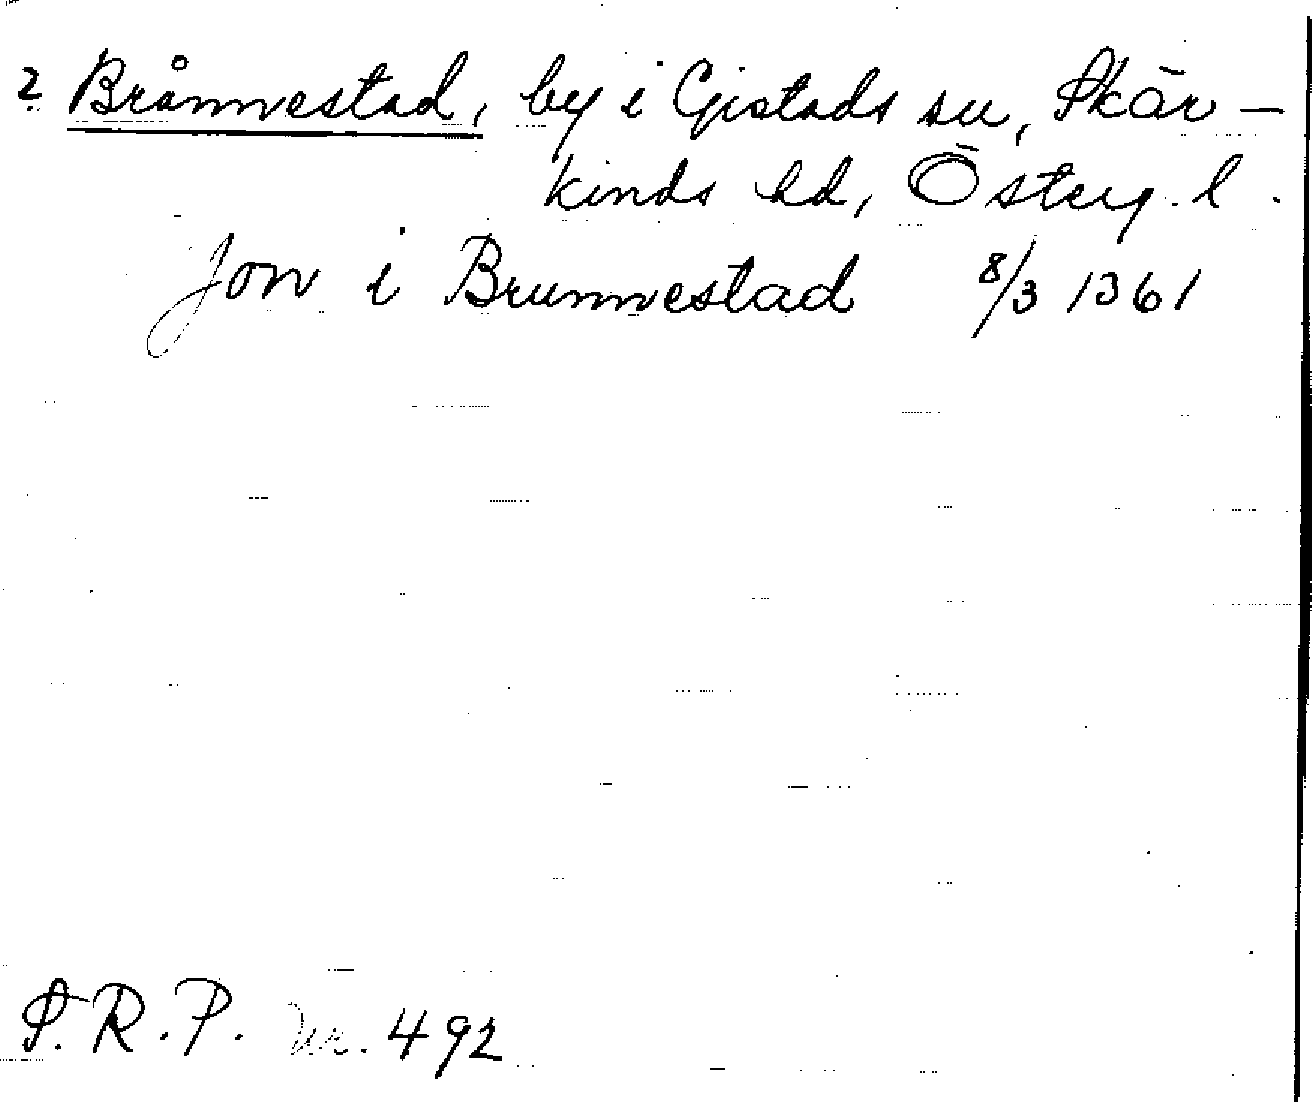 2 Brånnestad, by i Gistads sn, Skär-
kinds hd, Österg. l.
Jon i Brunnestad 8/3 1361
S.R.P. Nr. 492